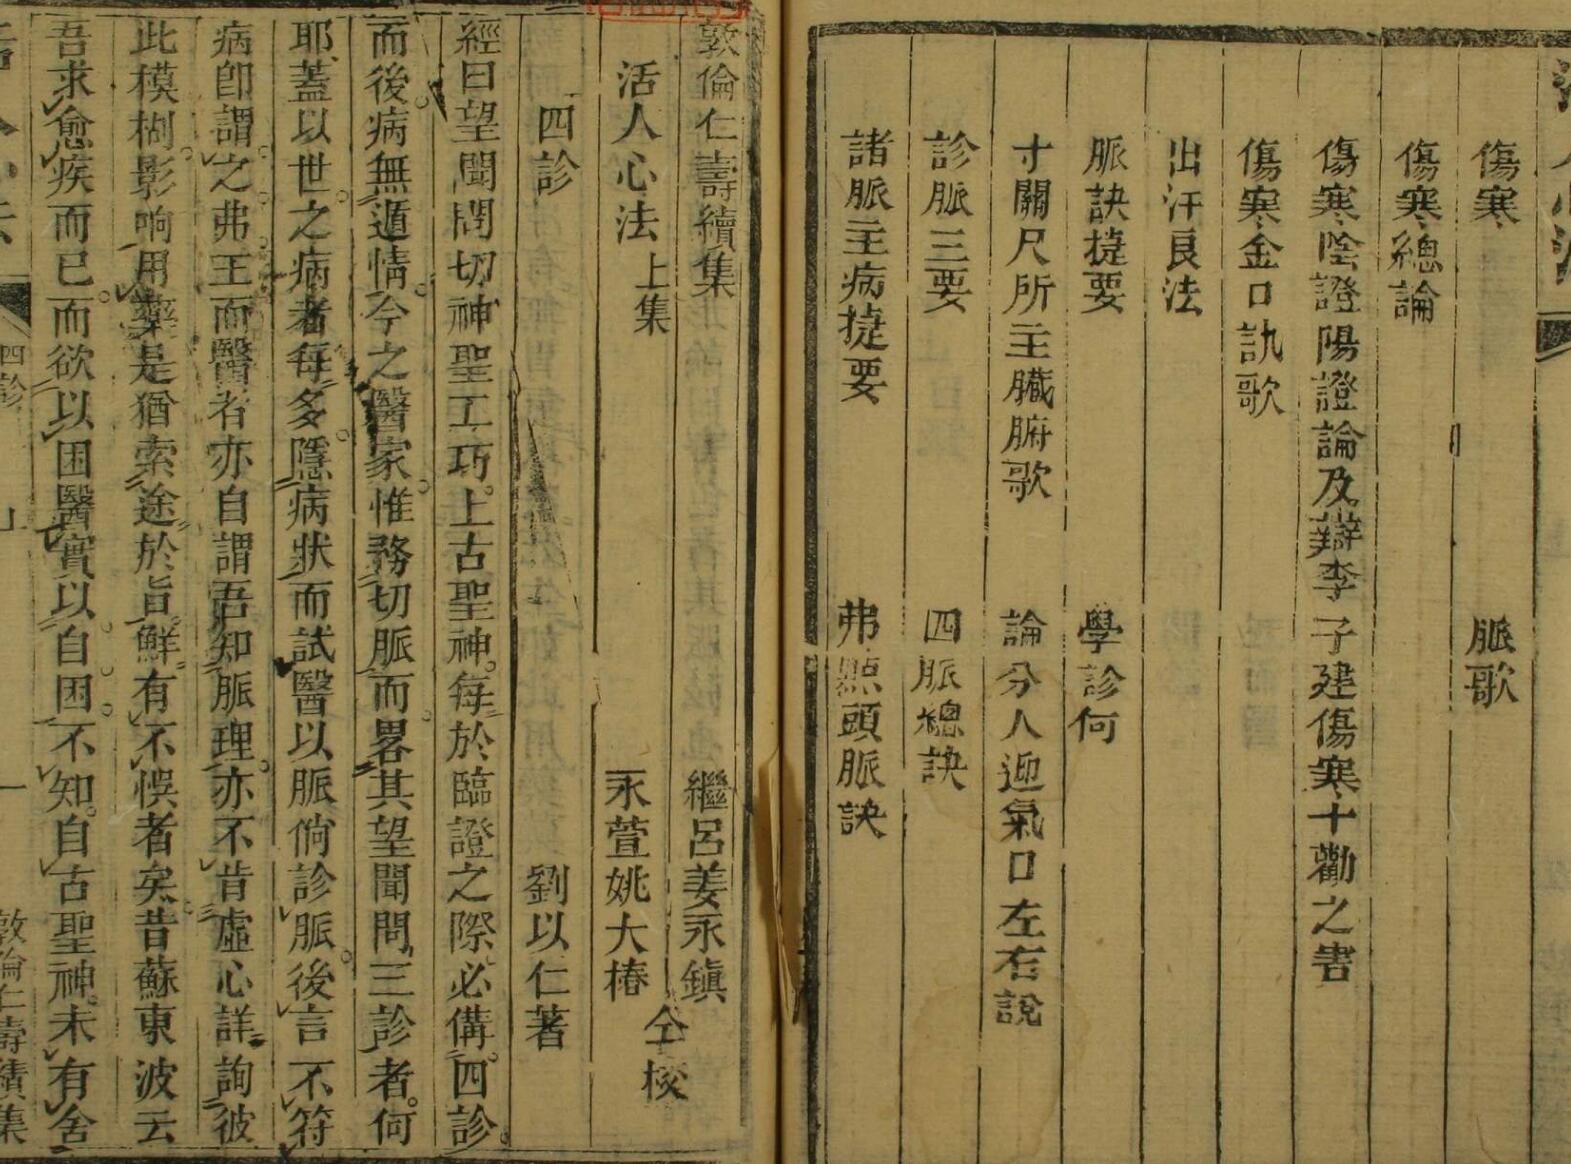 傷寒 脈歌
傷寒總論
傷寒陰證陽證論及辯李子建傷寒十勸之書
傷寒金口訣歌
出汗良法
脈訣㨗要 學診何
寸關尺所主臟腑歌 論分人迎氣口左右說
診脈三要 四脈總訣
諸脈主病㨗要 弗點頭脈訣
敦倫仁壽續集 繼呂姜永鎮
活人心法 上集 永萱姚大椿 仝校
四診 劉以仁著
經曰望聞問切神聖工巧上古聖神每於臨證之際必備四診
而後病無遁情今之醫家惟務切脈而畧其望聞問三診者何
耶蓋以世之病者每多隱病狀而試醫以脈倘診脈後言不符
病卽謂之弗王而醫者亦自謂吾知脈理亦不肯虛心詳詢彼
此模糊影响用藥是猶索途於盲鮮有不悞者矣昔蘇東波云
吾求愈疾而已而欲以困醫實以自困不知自古聖神未有舍
四診 一 敦倫仁壽續集